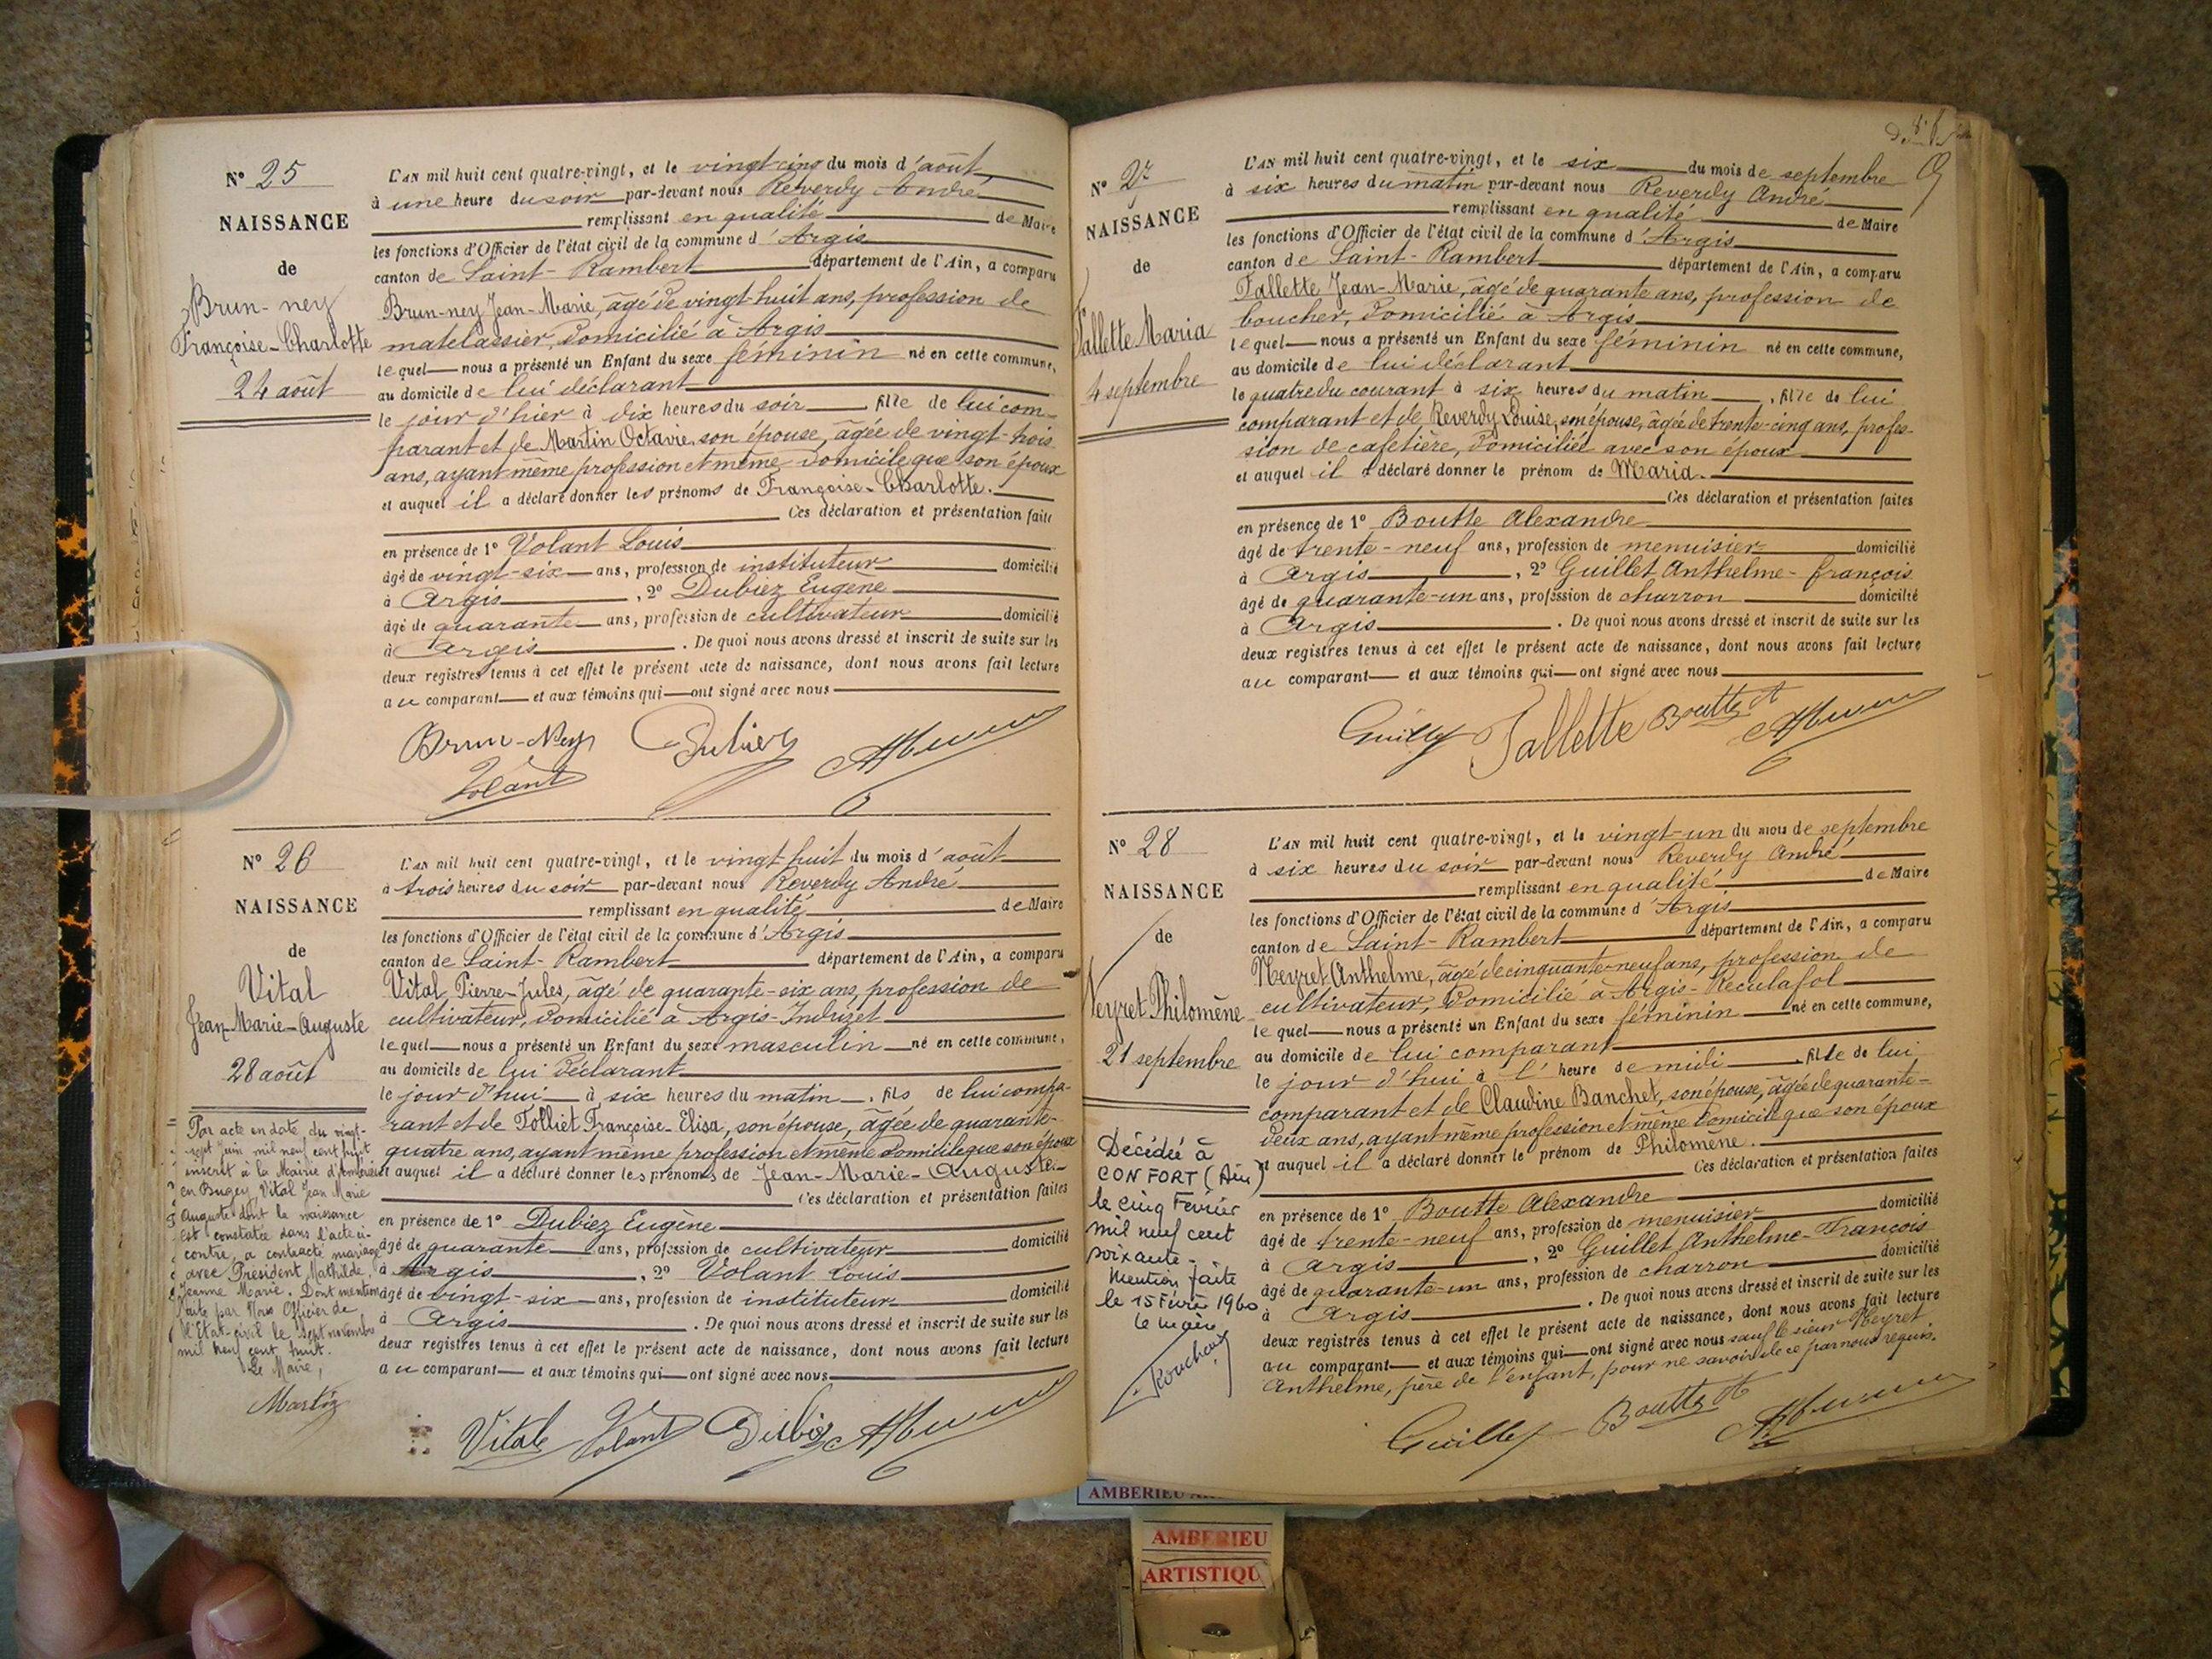 N° 25
NAISSANCE
de
Brun-ney
Françoise-Charlotte
24 août
L'AN mil huit cent quatre-vingt, et le vingt-cinq du mois d'août
à une heure du soir par-devant nous Reverdy André
remplissant en qualité de Maire
les fonctions d'Officier de l'état civil de la commune d'Argis
canton de Saint-Rambert département de l'Ain, a comparu
Brun-ney Jean-Marie, âgé de vingt-huit ans, profession de
matelassier, domicilié à Argis
lequel nous a présenté un Enfant du sexe féminin né en cette commune,
au domicile de lui déclarant
le jour d'hier à dix heures du soir, fille de lui com-
parant et de Martin Octavie, son épouse, âgée de vingt-trois
ans, ayant même profession et même domicile que son époux
et auquel il a déclaré donner les prénoms de Françoise-Charlotte.
Ces déclaration et présentation faites
en présence de 1° Volant Louis
âgé de vingt-six ans, profession de instituteur domicilié
à Argis, 2° Dubiez Eugène
âgé de quarante ans, profession de cultivateur domicilié
à Argis. De quoi nous avons dressé et inscrit de suite sur les
deux registres tenus à cet effet le présent acte de naissance, dont nous avons fait lecture
au comparant et aux témoins qui ont signé avec nous
Brun-Ney Dubiez
Volant
N° 26
NAISSANCE
de
Vital
Jean-Marie-Auguste
28 août
Par acte en date du vingt-
sept juin mil neuf cent huit
inscrit à la Mairie d'Ambérieu
en Bugey, Vital Jean Marie
Auguste dont la naissance
est constatée dans l'acte ci-
contre, a contracté mariage
avec Président Mathilde,
Jeanne Marie. Dont mention
faite par Nous Officier de
l'Etat-civil le sept novembre
mil neuf cent huit.
Le Maire,
Martin
L'AN mil huit cent quatre-vingt, et le vingt-huit du mois d'août
à trois heures du soir par-devant nous Reverdy André
remplissant en qualité de Maire
les fonctions d'Officier de l'état civil de la commune d'Argis
canton de Saint-Rambert département de l'Ain, a comparu
Vital Pierre-Jules, âgé de quarante-six ans, profession de
cultivateur, domicilié à Argis-Indrizet
lequel nous a présenté un Enfant du sexe masculin né en cette commune,
au domicile de lui déclarant
le jour d'hui à six heures du matin, fils de lui compa-
rant et de Tolliet Françoise-Elisa, son épouse, âgée de quarante-
quatre ans, ayant même profession et même domicile que son époux
et auquel il a déclaré donner les prénoms de Jean-Marie-Auguste
Ces déclaration et présentation faites
en présence de 1° Dubiez Eugène
âgé de quarante ans, profession de cultivateur domicilié
à Argis, 2° Volant Louis
âgé de vingt-six ans, profession de instituteur domicilié
à Argis. De quoi nous avons dressé et inscrit de suite sur les
deux registres tenus à cet effet le présent acte de naissance, dont nous avons fait lecture
au comparant et aux témoins qui ont signé avec nous
Vital Volant Dubiez
N° 27
NAISSANCE
de
Fallette Maria
4 septembre
L'AN mil huit cent quatre-vingt, et le six du mois de septembre
à six heures du matin par-devant nous Reverdy André
remplissant en qualité de Maire
les fonctions d'Officier de l'état civil de la commune d'Argis
canton de Saint-Rambert département de l'Ain, a comparu
Fallette Jean-Marie, âgé de quarante ans, profession de
boucher, domicilié à Argis
lequel nous a présenté un Enfant du sexe féminin né en cette commune,
au domicile de lui déclarant
le quatre du courant à six heures du matin, fille de lui
comparant et de Reverdy Louise, son épouse, âgée de trente-cinq ans, profes-
sion de cafetière, domiciliée avec son époux
et auquel il a déclaré donner le prénom de Maria.
Ces déclaration et présentation faites
en présence de 1° Boutte Alexandre
âgé de trente-neuf ans, profession de menuisier domicilié
à Argis, 2° Guillet Anthelme-François
âgé de quarante-un ans, profession de charron domicilié
à Argis. De quoi nous avons dressé et inscrit de suite sur les
deux registres tenus à cet effet le présent acte de naissance, dont nous avons fait lecture
au comparant et aux témoins qui ont signé avec nous
Guillet Fallette Boutte A
N° 28
NAISSANCE
de
Neyret Philomène
21 septembre
Décédée à
CONFORT (Ain)
le cinq Février
mil neuf cent
soixante -
Mention faite
le 15 Févrie 1960
le maire
L'AN mil huit cent quatre-vingt, et le vingt-un du mois de septembre
à six heures du soir par-devant nous Reverdy André
remplissant en qualité de Maire
les fonctions d'Officier de l'état civil de la commune d'Argis
canton de Saint-Rambert département de l'Ain, a comparu
Neyret Anthelme, âgé de cinquante-neuf ans, profession de
cultivateur, domicilié à Argis-Reculafol
lequel nous a présenté un Enfant du sexe féminin né en cette commune,
au domicile de lui comparant
le jour d'hui à l'heure de midi, fille de lui
comparant et de Claudine Banchet, son épouse, âgée de quarante-
deux ans, ayant même profession et même domicile que son époux
et auquel il a déclaré donner le prénom de Philomène.
Ces déclaration et présentation faites
en présence de 1° Boutte Alexandre domicilié
âgé de trente-neuf ans, profession de menuisier
à Argis, 2° Guillet Anthelme-François
âgé de quarante-un ans, profession de charron domicilié
à Argis. De quoi nous avons dressé et inscrit de suite sur les
deux registres tenus à cet effet le présent acte de naissance, dont nous avons fait lecture
au comparant et aux témoins qui ont signé avec nous sauf le sieur Neyret
Anthelme, père de l'enfant, pour ne savoir de ce par nous requis.
Guillet Boutte A
AMBERIEU
AMBERIEU
ARTISTIQU